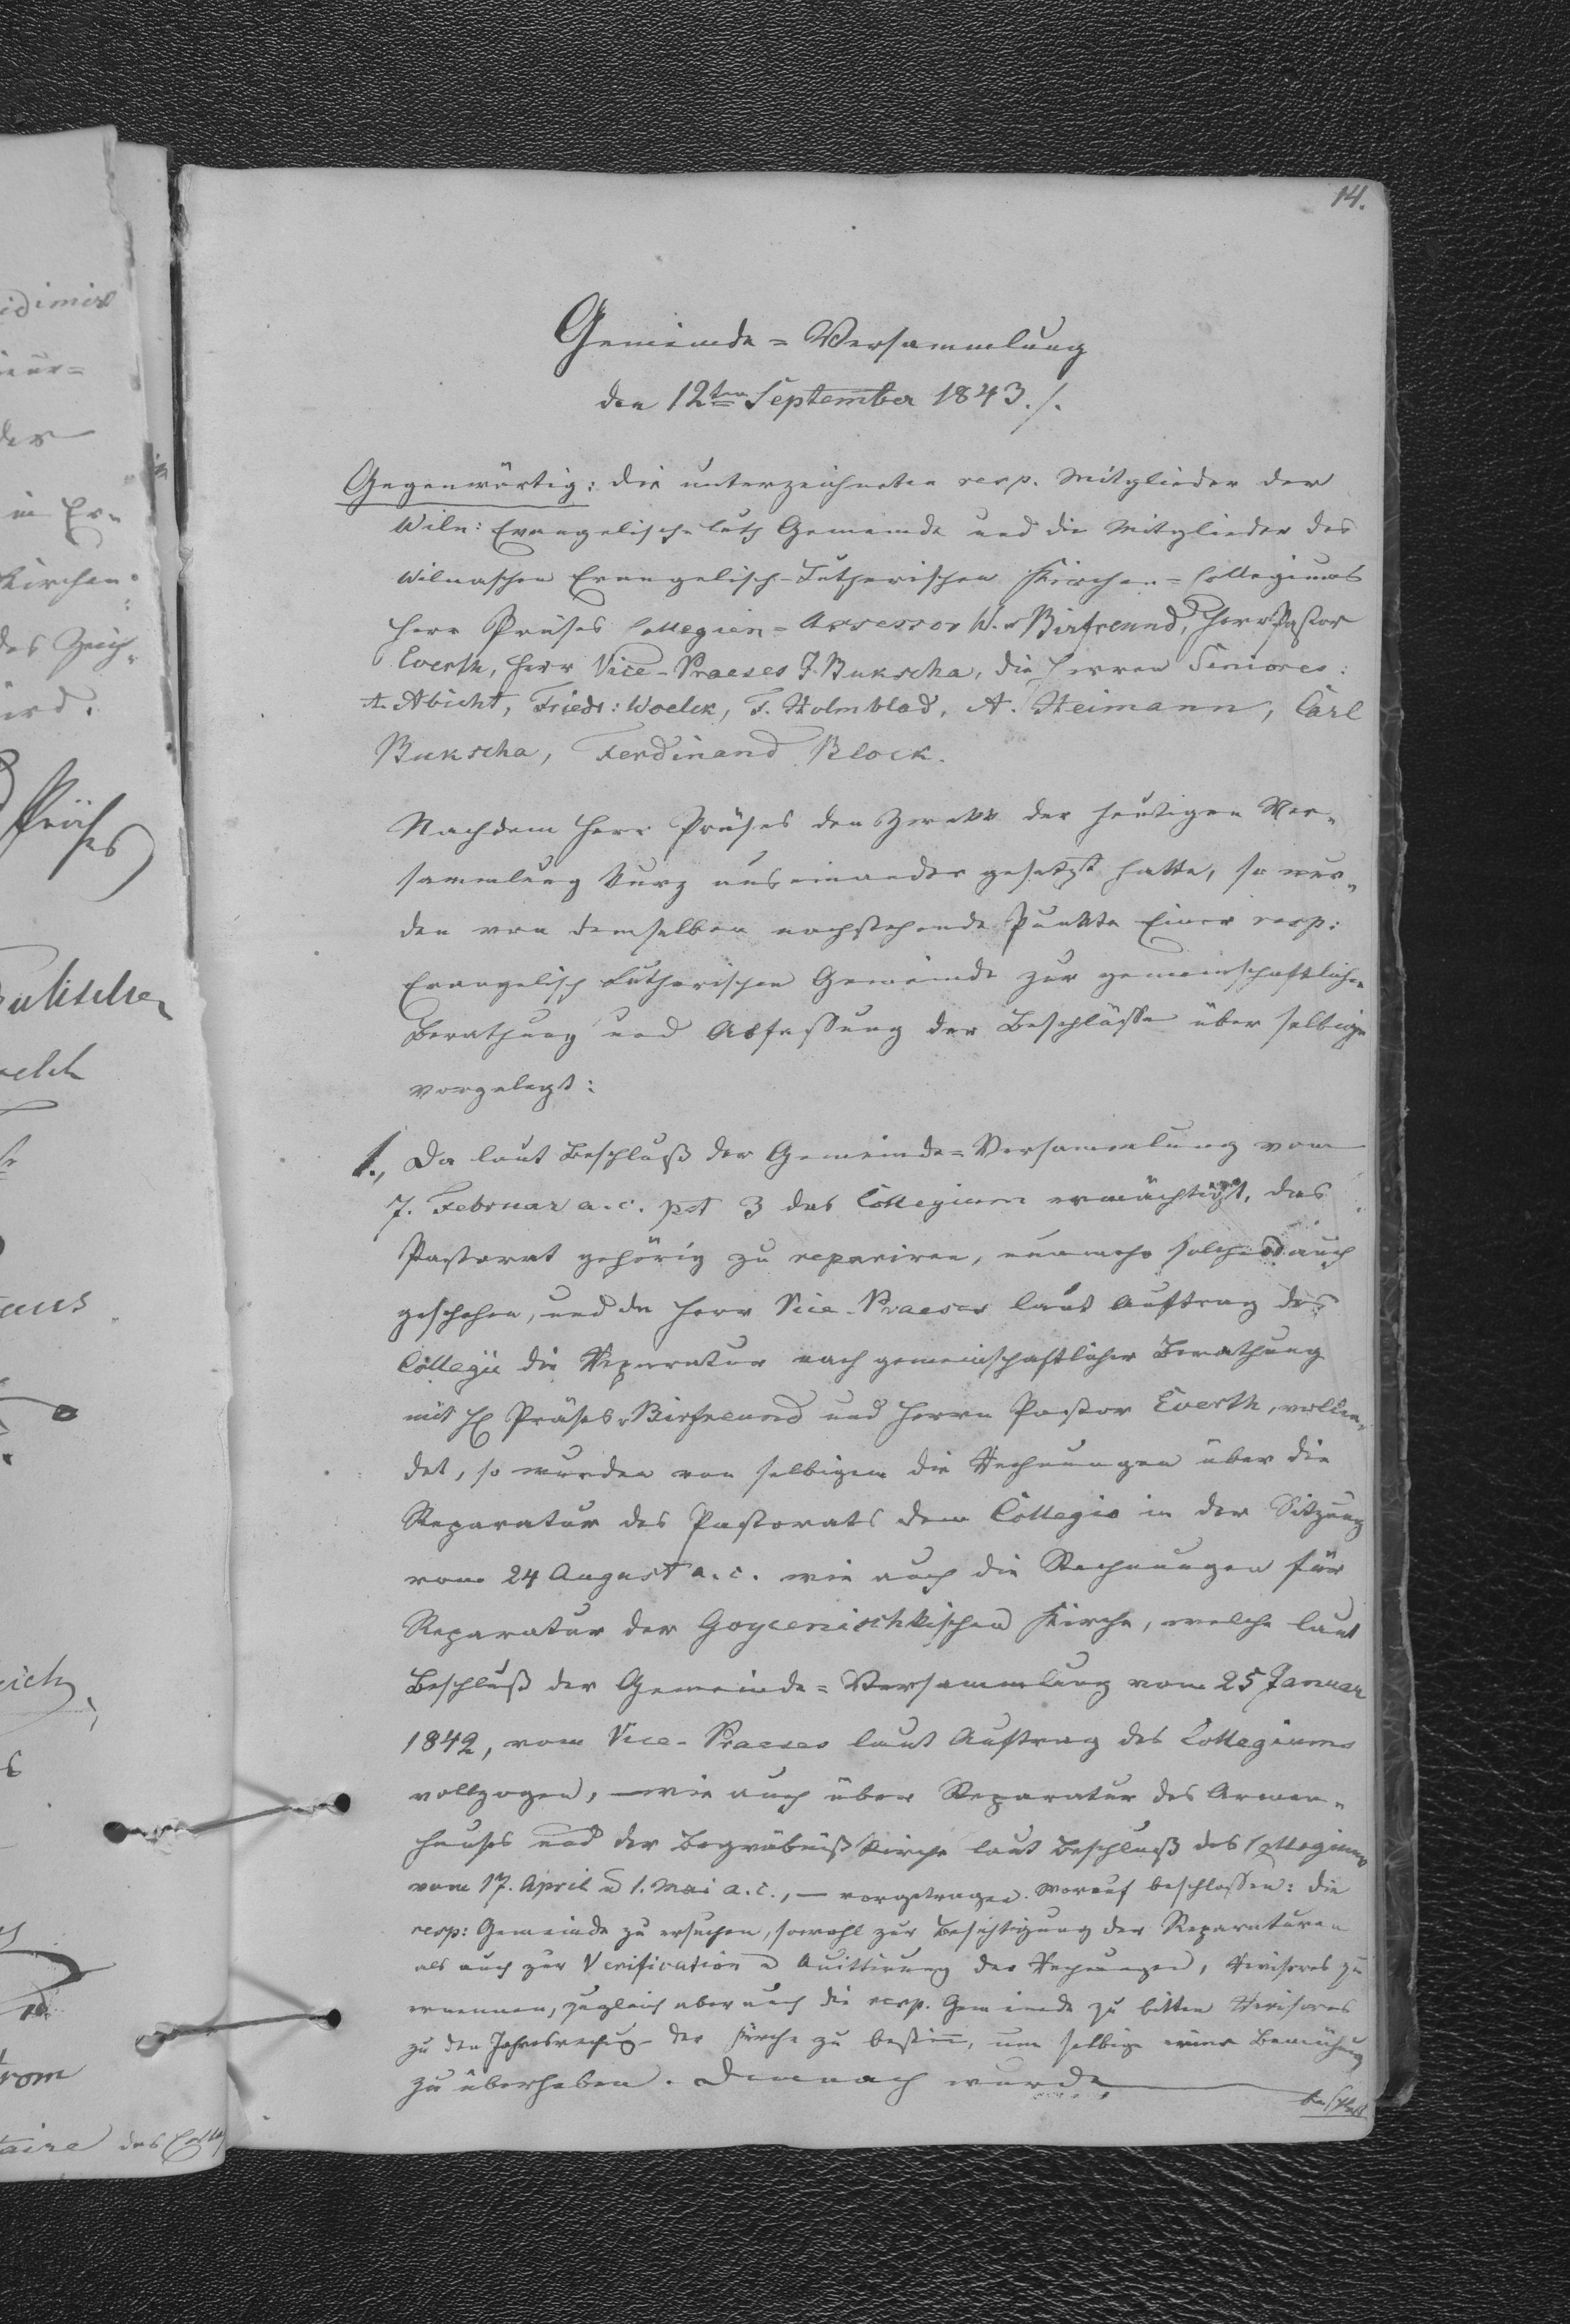 14.
Gemeinde = Versammlung
den 12ten September 1843./.
Gegenwärtig: die unterzeichneten resp. Mitglieder der
Wiln: Evangelisch-luth Gemeinde und die Mitglieder des
Wilnaschen Evangelisch-Lutherischen Kirchen = Collegiums
Herr Präses Collegien = Assessor W. v Birfreund, Herr Pastor
Everth, Herr Vice-Praeses J. Bukscha, die Herren Seniores:
A. Abicht, Friedr: Woelck, F. Holmblad, A. Heimann, Carl
Bukscha, Ferdinand Block.
Nachdem Herr Präses den Zwekk der heutigen Ver-
sammlung kurz auseinander gesetzt hatte, so wur-
den von demselben nachstehende Punkte Einer resp:
Evangelisch Lutherischen Gemeinde zur gemeinschaftlichen
Berathung und Abfassung der Beschlüsse über selbige
vorgelegt:
1., Da laut Beschluß der Gemeinde = Versammlung vom
7. Februar a. c. pct 3 das Collegium ermächtigt, das
Pastorat gehörig zu repariren, nunmehr solches auch
geschehen, und da Herr Vice-Praeses laut Auftrag des
Collegii die Reparatur nach gemeinschaftlicher Berathung
mit H Präses v Birfreund und Herrn Pastor Everth, vollen-
det, so wurden von selbigem die Rechnungen über die
Reparatur des Pastorats dem Collegio in der Sitzung
vom 24 August a. c. wie auch die Rechnungen für
Reparatur der Goycenischkischen Kirche, welche laut
Beschluß der Gemeinde = Versammlung vom 25 Januar
1842, vom Vice-Praeses laut Auftrag des Collegiums
vollzogen, wie auch über Reparatur des Armen-
hauses und der Begräbniß Kirche laut Beschluß des Collegiums
vom 17. April u 1. Mai a. c., — vorgetragen. Worauf beschlossen: die
resp: Gemeinde zu ersuchen, sowohl zur Besichtigung der Reparaturen
als auch zur Verification u Quittirung der Rechnungen, Revisores zu
ernennen, zugleich aber auch die resp. Gemeinde zu bitten Revisores
zu den Jahresrechnug der Kirche zu bestimen, um selbige einer Bemühung
zu überheben. Demnach wurde,
beschloss